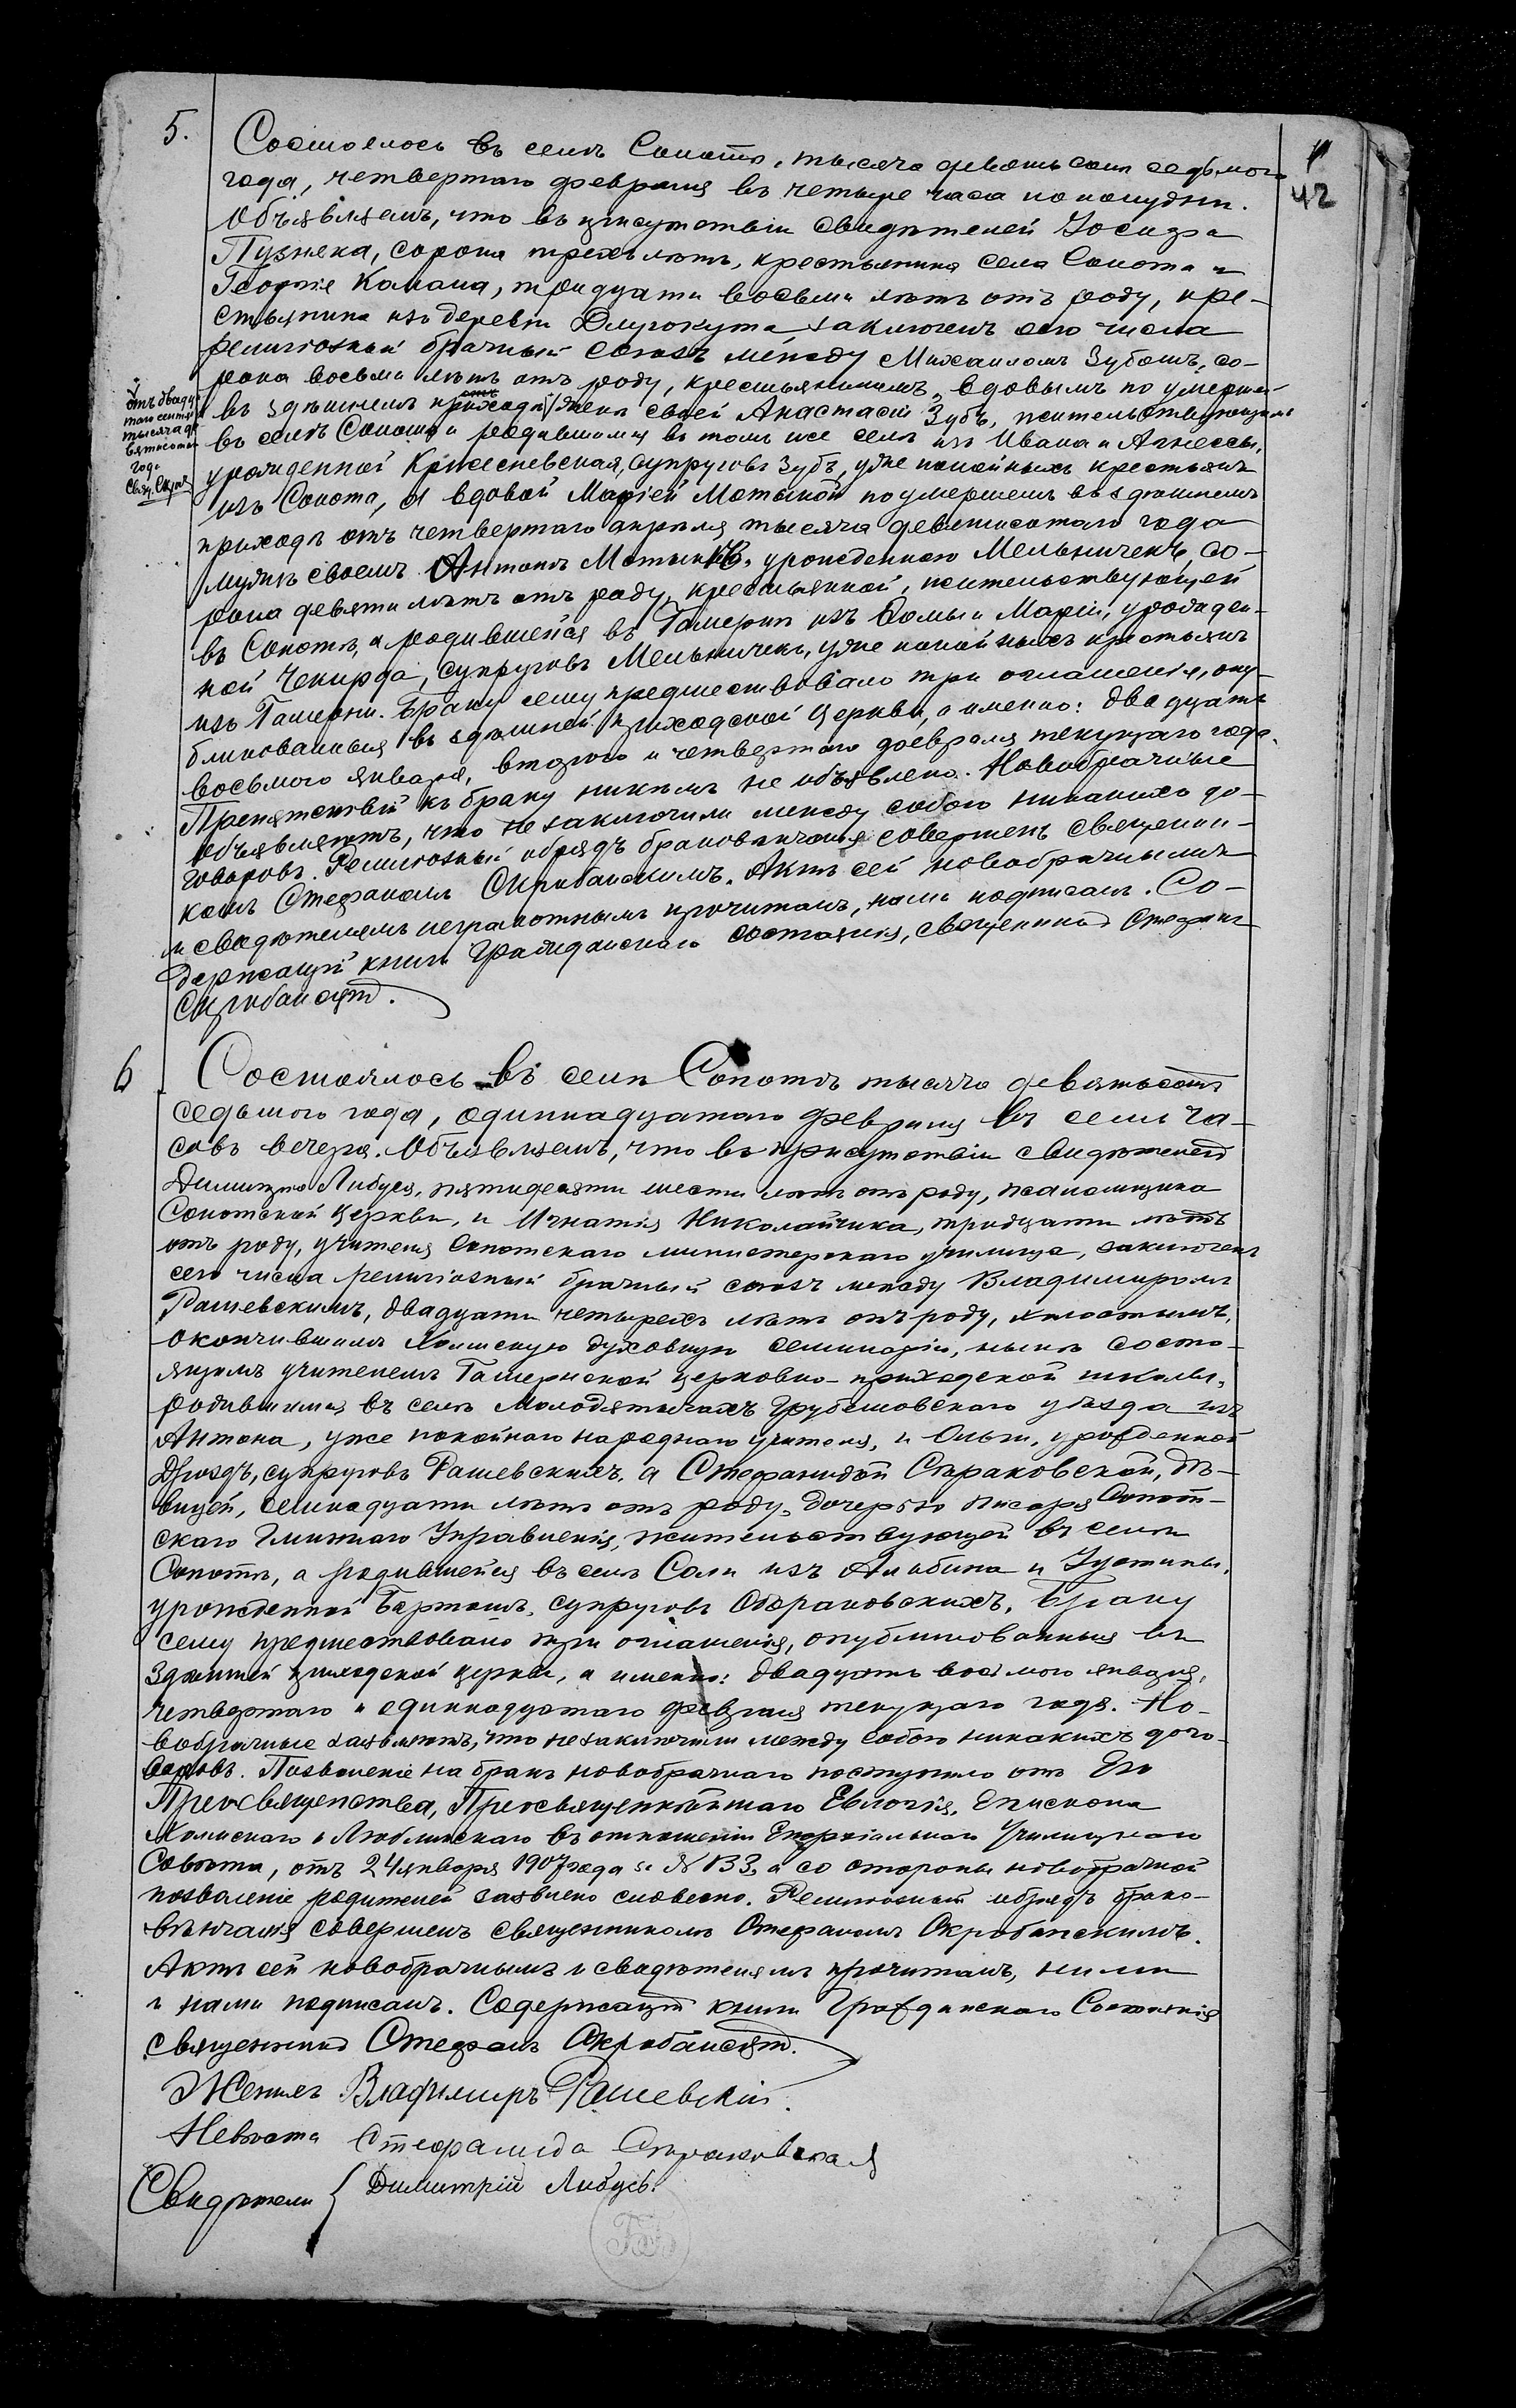 42
5.
Состоялось въ селѣ Сопотѣ, тысяча девятьсотъ седьмого
года, четвертаго февраля въ четыре часа по полудни.
Объявляемъ, что въ присутствіи свидѣтелей Іосифа
Пузняка, сорока трехъ лѣтъ, крестьянина села Сопота и
Георгія Капана, тридцати восьми лѣтъ отъ роду, кре-
стьянина изъ деревни Длугокута заключенъ сего числа
религіозный брачный союзъ между Михаиломъ Зубомъ, со-
рока восьми лѣтъ отъ роду, крестьяниномъ, вдовымъ по умершей
въ здѣшнемъ приходѣ женѣ своей Анастасіи Зубъ, жительствующимъ
въ селѣ Сопотѣ и родившимся въ томъ же селѣ изъ Ивана и Агнессы,
отъ двадца-
таго сентября
тысяча де-
вятисотаго
года
Свящ. Скриб
урожденной Кржесневская, супруговъ Зубъ, уже покойныхъ крестьянъ
изъ Сопота, и вдовой Маріей Мотыкой по умершемъ въ здѣшнемъ
приходѣ отъ четвертаго апрѣля тысяча девятисотаго года
мужѣ своемъ Антонѣ Мотыкѣ, урожденною Мельничекъ, со-
рока девяти лѣтъ отъ роду, крестьянкой, жительствующей
въ Сопотѣ, а родившейся въ Тамерни изъ Ѳомы и Маріи, урожден-
ной Чекирда, супруговъ Мельничекъ, уже покойныхъ крестьянъ
изъ Тамерни. Браку сему предшествовало три оглашенія, опу-
бликованныя въ здѣшней приходской церкви, а именно: двадцать
восьмого января, второго и четвертаго февраля текущаго года.
Препятствій къ браку никѣмъ не объявлено. Новобрачные
объявляютъ, что не заключили между собою никакихъ до-
говоровъ. Религіозный обрядъ браковѣнчанія совершенъ священни-
комъ Стефаномъ Скрибанскимъ. Актъ сей новобрачнымъ
и свидѣтелямъ неграмотнымъ прочитанъ, нами подписанъ. Со-
держащій книги гражданскаго состоянія, священникъ Стефанъ
Скрибанскій.
6
Состоялось въ селѣ Сопотѣ тысяча девятьсотъ
седьмого года, одиннадцатаго февраля въ семь ча-
совъ вечера. Объявляемъ, что въ присутствіи свидѣтелей
Димитрія Либуся, пятидесяти шести лѣтъ отъ роду, псаломщика
Сопотской церкви, и Игнатія Николайчика, тридцати лѣтъ
отъ роду, учителя Сопотскаго министерскаго училища, заключенъ
сего числа религіозный брачный союзъ между Владимиромъ
Рашевскимъ, двадцати четырехъ лѣтъ отъ роду, холостымъ,
окончившимъ Холмскую духовную семинарію, нынѣ состо-
ящимъ учителемъ Тамернской церковно-приходской школы,
родившимся въ селѣ Молодятычахъ Грубешовскаго уѣзда изъ
Антона, уже покойнаго народнаго учителя, и Ольги, урожденной
Дроздъ, супруговъ Рашевскихъ, и Стефанидой Сѣраковской, дѣ-
вицей, семнадцати лѣтъ отъ роду, дочерью писаря Сопот-
скаго Гминнаго Управленія, жительствующей въ селѣ
Сопотѣ, а родившейся въ селѣ Соли изъ Альбина и Іустины,
урожденной Бартошъ, супруговъ Сѣраковскихъ. Браку
сему предшествовало три оглашенія, опубликованныя въ
здѣшней приходской церкви, а именно: двадцать восьмого января,
четвертаго и одиннадцатаго февраля текущаго года. Но-
вобрачные заявляютъ, что не заключили между собою никакихъ дого-
воровъ. Позволеніе на бракъ новобрачнаго поступило отъ Его
Преосвященства, Преосвященнѣйшаго Евлогія, Епископа
Холмскаго и Люблинскаго въ отношеніи Епархіальнаго Училищнаго
Совѣта, отъ 24 января 1907 года за № 133, а со стороны новобрачной
позволеніе родителей заявлено словесно. Религіозный обрядъ брако-
вѣнчанія совершенъ священникомъ Стефаномъ Скрибанскимъ.
Актъ сей новобрачнымъ и свидѣтелямъ прочитанъ, ними
и нами подписанъ. Содержащій книги Гражданскаго Состоянія
священникъ Стефанъ Скрибанскій.
Женихъ Владимиръ Рашевскій.
Невѣста Стефанида Сѣраковская
Свидѣтели { Димитрій Либусь.